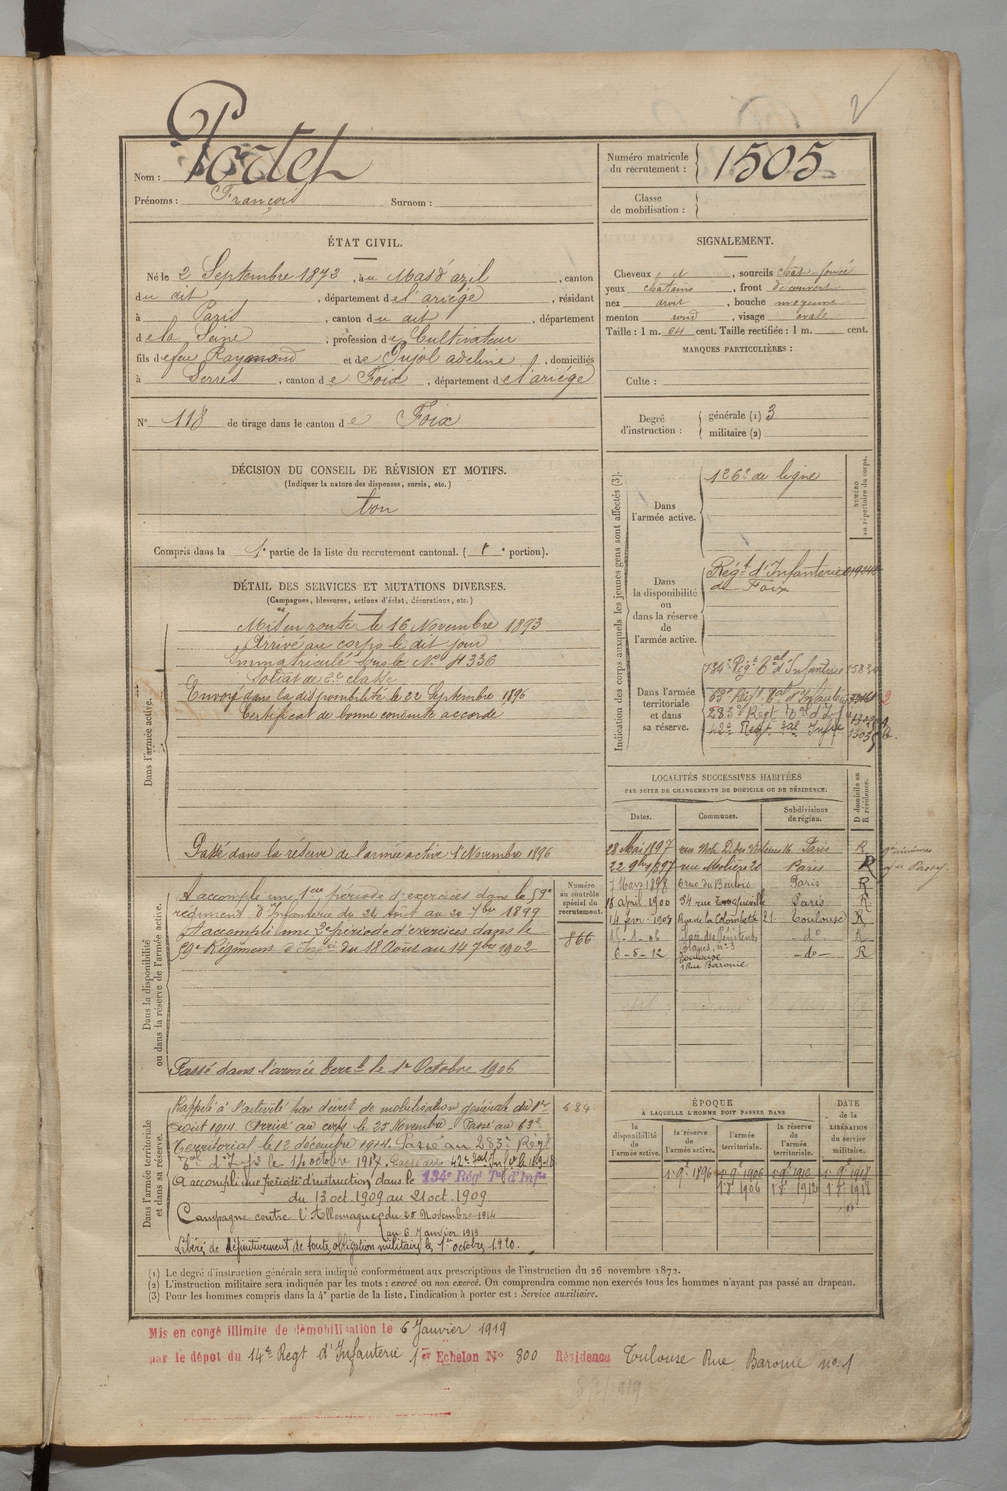 2
Nom : Portet
Prénoms : François Surnom :
Numéro matricule du recrutement : 1505
Classe de mobilisation :
ÉTAT CIVIL.
Né le 2 Septembre 1873, à au Mas d'azil, canton
du dit, département de l'ariége, résidant
à Paris, canton du dit, département
de la Seine, profession de Cultivateur
fils de feu Raymond et de Pujol adeline, domiciliés
à Serres, canton de Foix, département de l'ariége
N° 118 de tirage dans le canton de Foix
SIGNALEMENT.
Cheveux et, sourcils chât. foncé
yeux chatains, front découvert
nez droit, bouche moyenne
menton rond, visage ovale
Taille : 1 m. 64 cent. Taille rectifiée : 1 m. cent.
MARQUES PARTICULIÈRES :
Culte :
Degré d'instruction : générale (1) 3
militaire (2)
DÉCISION DU CONSEIL DE RÉVISION ET MOTIFS.
(Indiquer la nature des dispenses, sursis, etc.)
bon
Compris dans la 1e partie de la liste du recrutement cantonal. ( portion).
DÉTAIL DES SERVICES ET MUTATIONS DIVERSES.
(Campagnes, blessures, actions d'éclat, décorations, etc.)
Dans l'armée active.
Mis en route le 16 Novembre 1893
Arrivé au corps le dit jour
Immatriculé sous le N° 4336
Soldat de 2e classe
Envoyé dans la disponibilité le 22 Septembre 1896
Certificat de bonne conduite accordé
Passé dans la réserve de l'armée active 1 Novembre 1896
Indication des corps auxquels les jeunes gens sont affectés (3).
NUMÉRO au répertoire du corps.
Dans l'armée active.
126e de ligne
Dans la disponibilité ou dans la réserve de l'armée active.
Régt d'Infanterie
de Foix
Dans l'armée territoriale et dans sa réserve.
134e Régt Tal d'Infanterie
63e Régt Tal d'Infanterie
283e Régt Tal d'Inf
42e Régt Tal Infrie
LOCALITÉS SUCCESSIVES HABITÉES
PAR SUITE DE CHANGEMENTS DE DOMICILE OU DE RÉSIDENCE.
Dates. Communes. Subdivisions de région. D domicile ou R résidence.
28 Mai 1897 rue Noh D. des Victoires 16 Paris R
22 9bre 1897 rue Molière 21 Paris R
7 Mars 1898 6 rue du Bouloi Paris R
18 avril 1900 54 rue Paris R
14 févr. 1904 Rue de la Colombette 21 Toulouse R
15-1-06 Place des Pénitents blancs, n° 3 - do - R
6-5-12 Toulouse 1 Rue Baronie - do - R
Dans la disponibilité ou dans la réserve de l'armée active.
Numéro au contrôle spécial du recrutement.
866
A accompli une 1ère période d'exercices dans le 59e
régiment d'Infanterie du 24 Août au 20 7bre 1899
A accompli une 2e période d'exercices dans le
59e Régiment d'Infrie du 18 Août au 14 7bre 1902
Passé dans l'armée terrle le 1er Octobre 1906
Dans l'armée territoriale et dans sa réserve.
684
Rappelé à l'activité par décret de mobilisation générale du 1er
août 1914 Arrivé au corps le 25 Novembre. Passé au 63e
Territorial le 12 décembre 1914. Passé au 283e Régt
Tal d'Infie le 1er octobre 1917. Passé au 42e Tal Inf le
A accompli une période d'instruction dans le 134e Régt Tal d'Infie
du 13 oct. 1909 au 21 oct. 1909
Campagne contre l'Allemagne du 25 Novembre 1914
au 6 Janvier 1919
Libéré définitivement de toute obligation militaire le 1er octobre 1920.
ÉPOQUE
À LAQUELLE L'HOMME DOIT PASSER DANS
la disponibilité de l'armée active. la réserve de l'armée active. l'armée territoriale. la réserve de l'armée territoriale.
DATE de la LIBÉRATION du service militaire.
1er 9e 1896 1er 9e 1906 1er 9e 1912 1er 9e 1918
1er 8e 1906 1er 8e 1912 1er 8e 1918
(1) Le degré d'instruction générale sera indiqué conformément aux prescriptions de l'instruction du 26 novembre 1872.
(2) L'instruction militaire sera indiquée par les mots : exercé ou non exercé. On comprendra comme non exercés tous les hommes n'ayant pas passé au drapeau.
(3) Pour les hommes compris dans la 4e partie de la liste, l'indication à porter est : Service auxiliaire.
Mis en congé illimité de démobilisation le 6 Janvier 1919
par le dépot du 14e Régt d'Infanterie 1er Echelon N° 800 Résidence Toulouse Rue Baronie n° 1